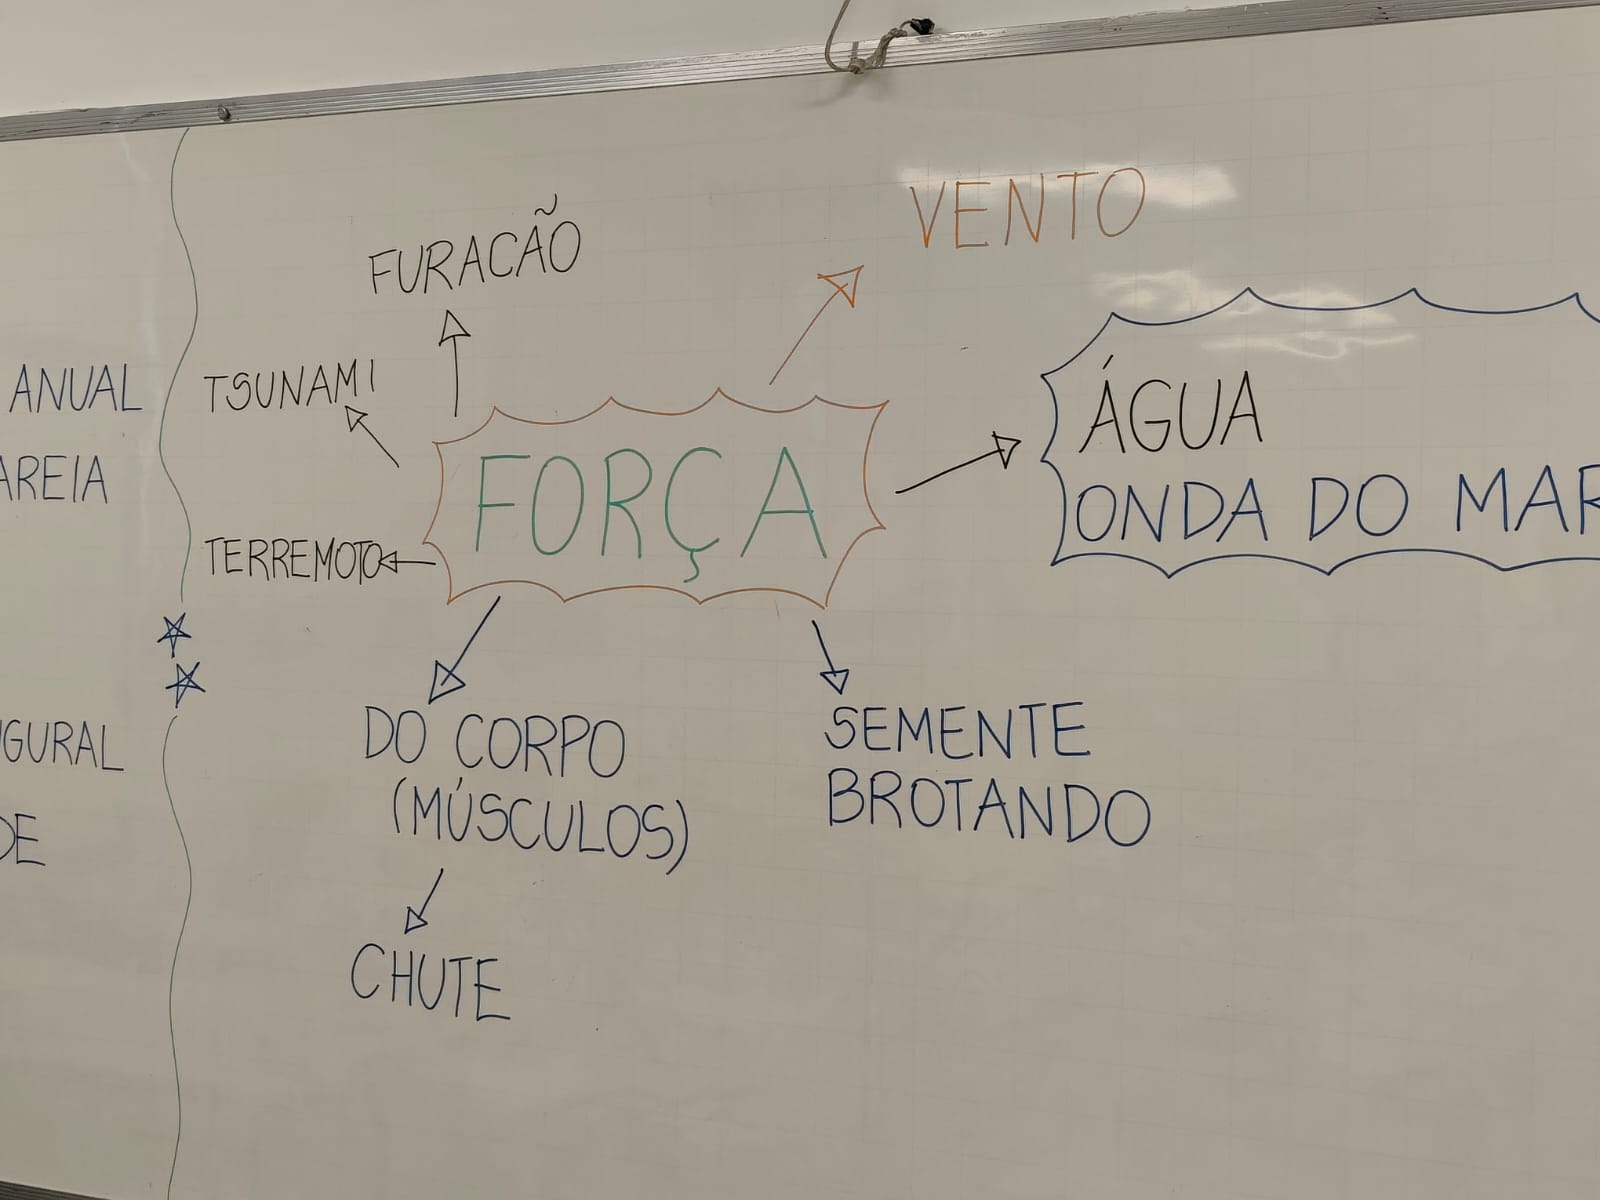 ANUAL
AREIA
GURAL
DE
FURACÃO
VENTO
TSUNAMI
FORÇA
ÁGUA
ONDA DO MAR
TERREMOTO
DO CORPO
(MÚSCULOS)
CHUTE
SEMENTE
BROTANDO